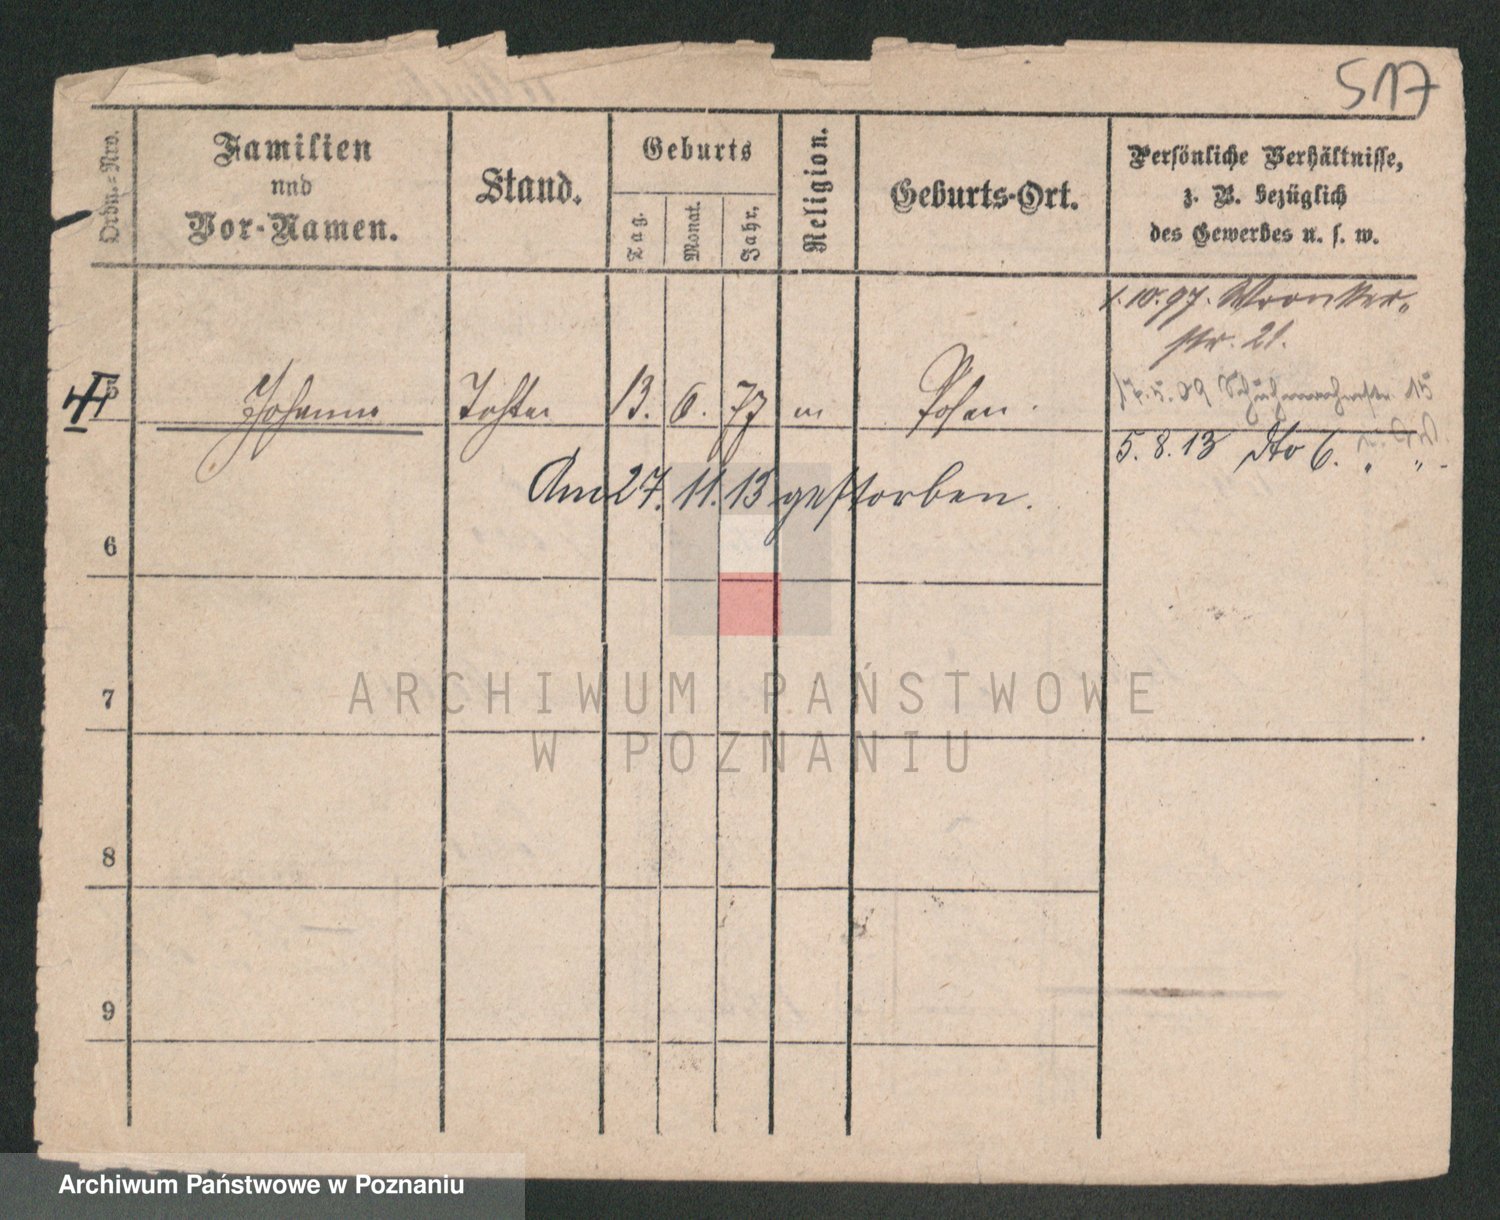 517
Ordn.-Nro.
Familien
und
Vor-Namen.
Stand.
Geburts
Tag.
Monat.
Jahr,
Religion.
Geburts-Ort.
Persönliche Verhältnisse,
z. B. bezüglich
des Gewerbes u. s. w.
1.10.97. Wronker-
str. 21.
5 Johanna Tochter 13. 6. 77 m Posen.
17.5.09 Schuhmacherstr. 15
5.8.13 dto 6. " "
Am 27. 11. 15 gestorben.
6
7
8
9
ARCHIWUM PAŃSTWOWE
W POZNANIU
Archiwum Państwowe w Poznaniu